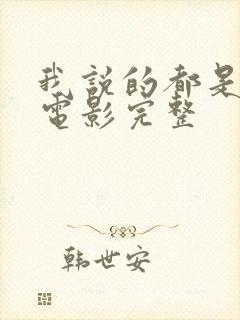 我説的都是
電影完整
韩世安